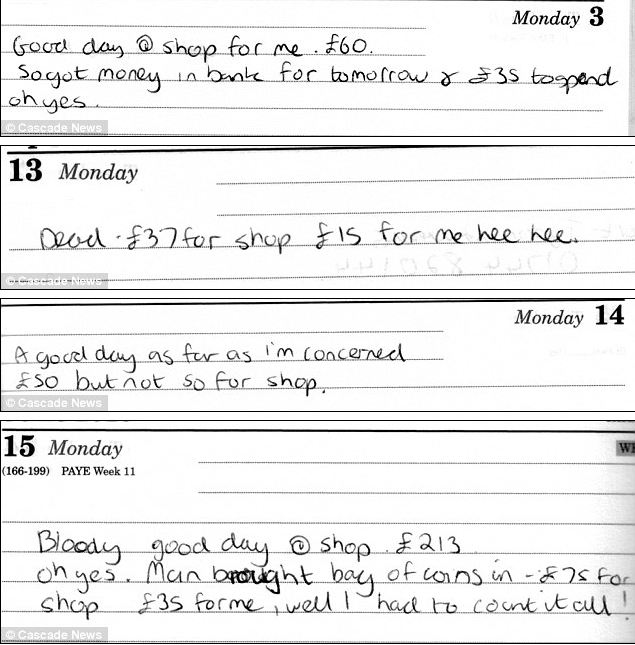 Monday 3
Good day @ shop for me. £60.
So got money in bank for tomorrow & £35 to spend
oh yes.
© Cascade News
13 Monday
Dead. £37 for shop £15 for me hee hee.
© Cascade News
Monday 14
A good day as far as i'm concerned
£50 but not so for shop.
© Cascade News
15 Monday
(166-199) PAYE Week 11
Bloody good day @ shop. £213
oh yes. Man brought bag of coins in - £75 for
shop £35 for me, well I had to count it all!
© Cascade News